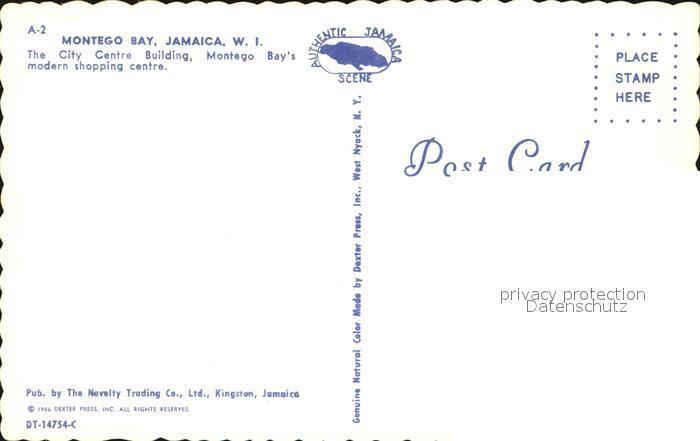 A-2
MONTEGO BAY, JAMAICA, W. I.
The City Centre Building, Montego Bay's
modern shopping centre.
AUTHENTIC JAMAICA
SCENE
PLACE
STAMP
HERE
Post Card
Genuine Natural Color Made by Dexter Press, Inc., West Nyack, N. Y.
privacy protection
Datenschutz
Pub. by The Novelty Trading Co., Ltd., Kingston, Jamaica
© 1966 DEXTER PRESS, INC. ALL RIGHTS RESERVED
DT-14754-C